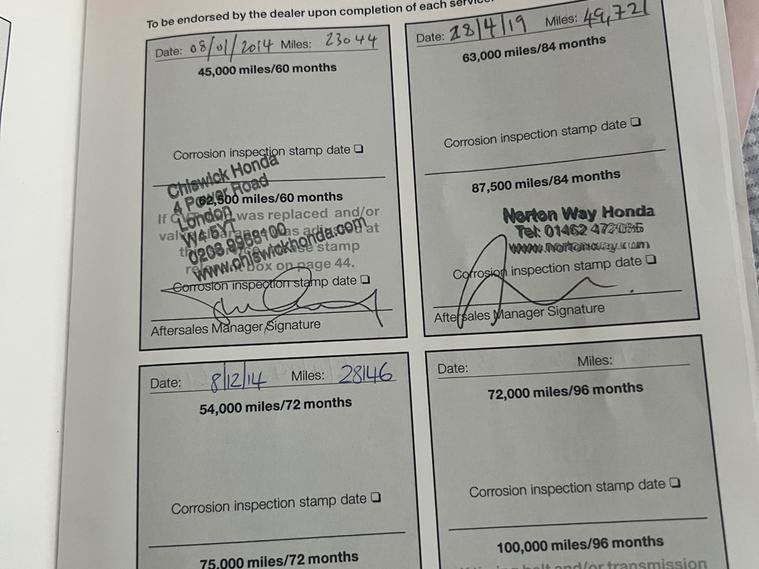 To be endorsed by the dealer upon completion of each service.
Date: 08/01/2014 Miles: 23044
45,000 miles/60 months
Corrosion inspection stamp date ❑
Chiswick Honda
4 Power Road
London
W4 5YT
0208 9968100
www.chiswickhonda.com
62,500 miles/60 months
If was replaced and/or
at
stamp
box on page 44.
Corrosion inspection stamp date ❑
Aftersales Manager Signature
Date: 28/4/19 Miles: 49,721
63,000 miles/84 months
Corrosion inspection stamp date ❑
87,500 miles/84 months
Norton Way Honda
Tel: 01462
www.nortonway.com
Corrosion inspection stamp date ❑
Aftersales Manager Signature
Date: 8/12/14 Miles: 28146
54,000 miles/72 months
Corrosion inspection stamp date ❑
75,000 miles/72 months
Date: Miles:
72,000 miles/96 months
Corrosion inspection stamp date ❑
100,000 miles/96 months
belt and/or transmission